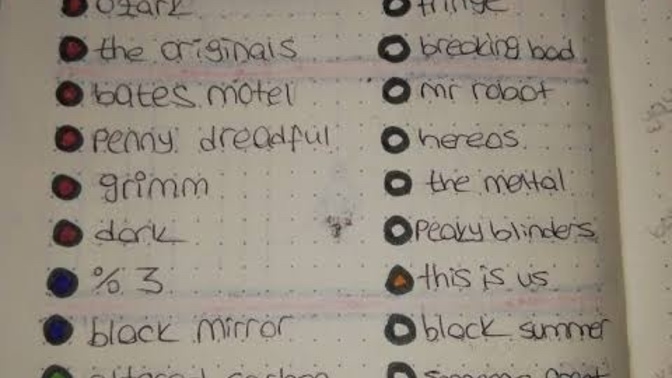 ozark
the originals
bates motel
penny dreadful
grimm
dark
% 3
black mirror
fringe
breaking bad
mr robot
hereos
the mental
peaky blinders
this is us
black summer